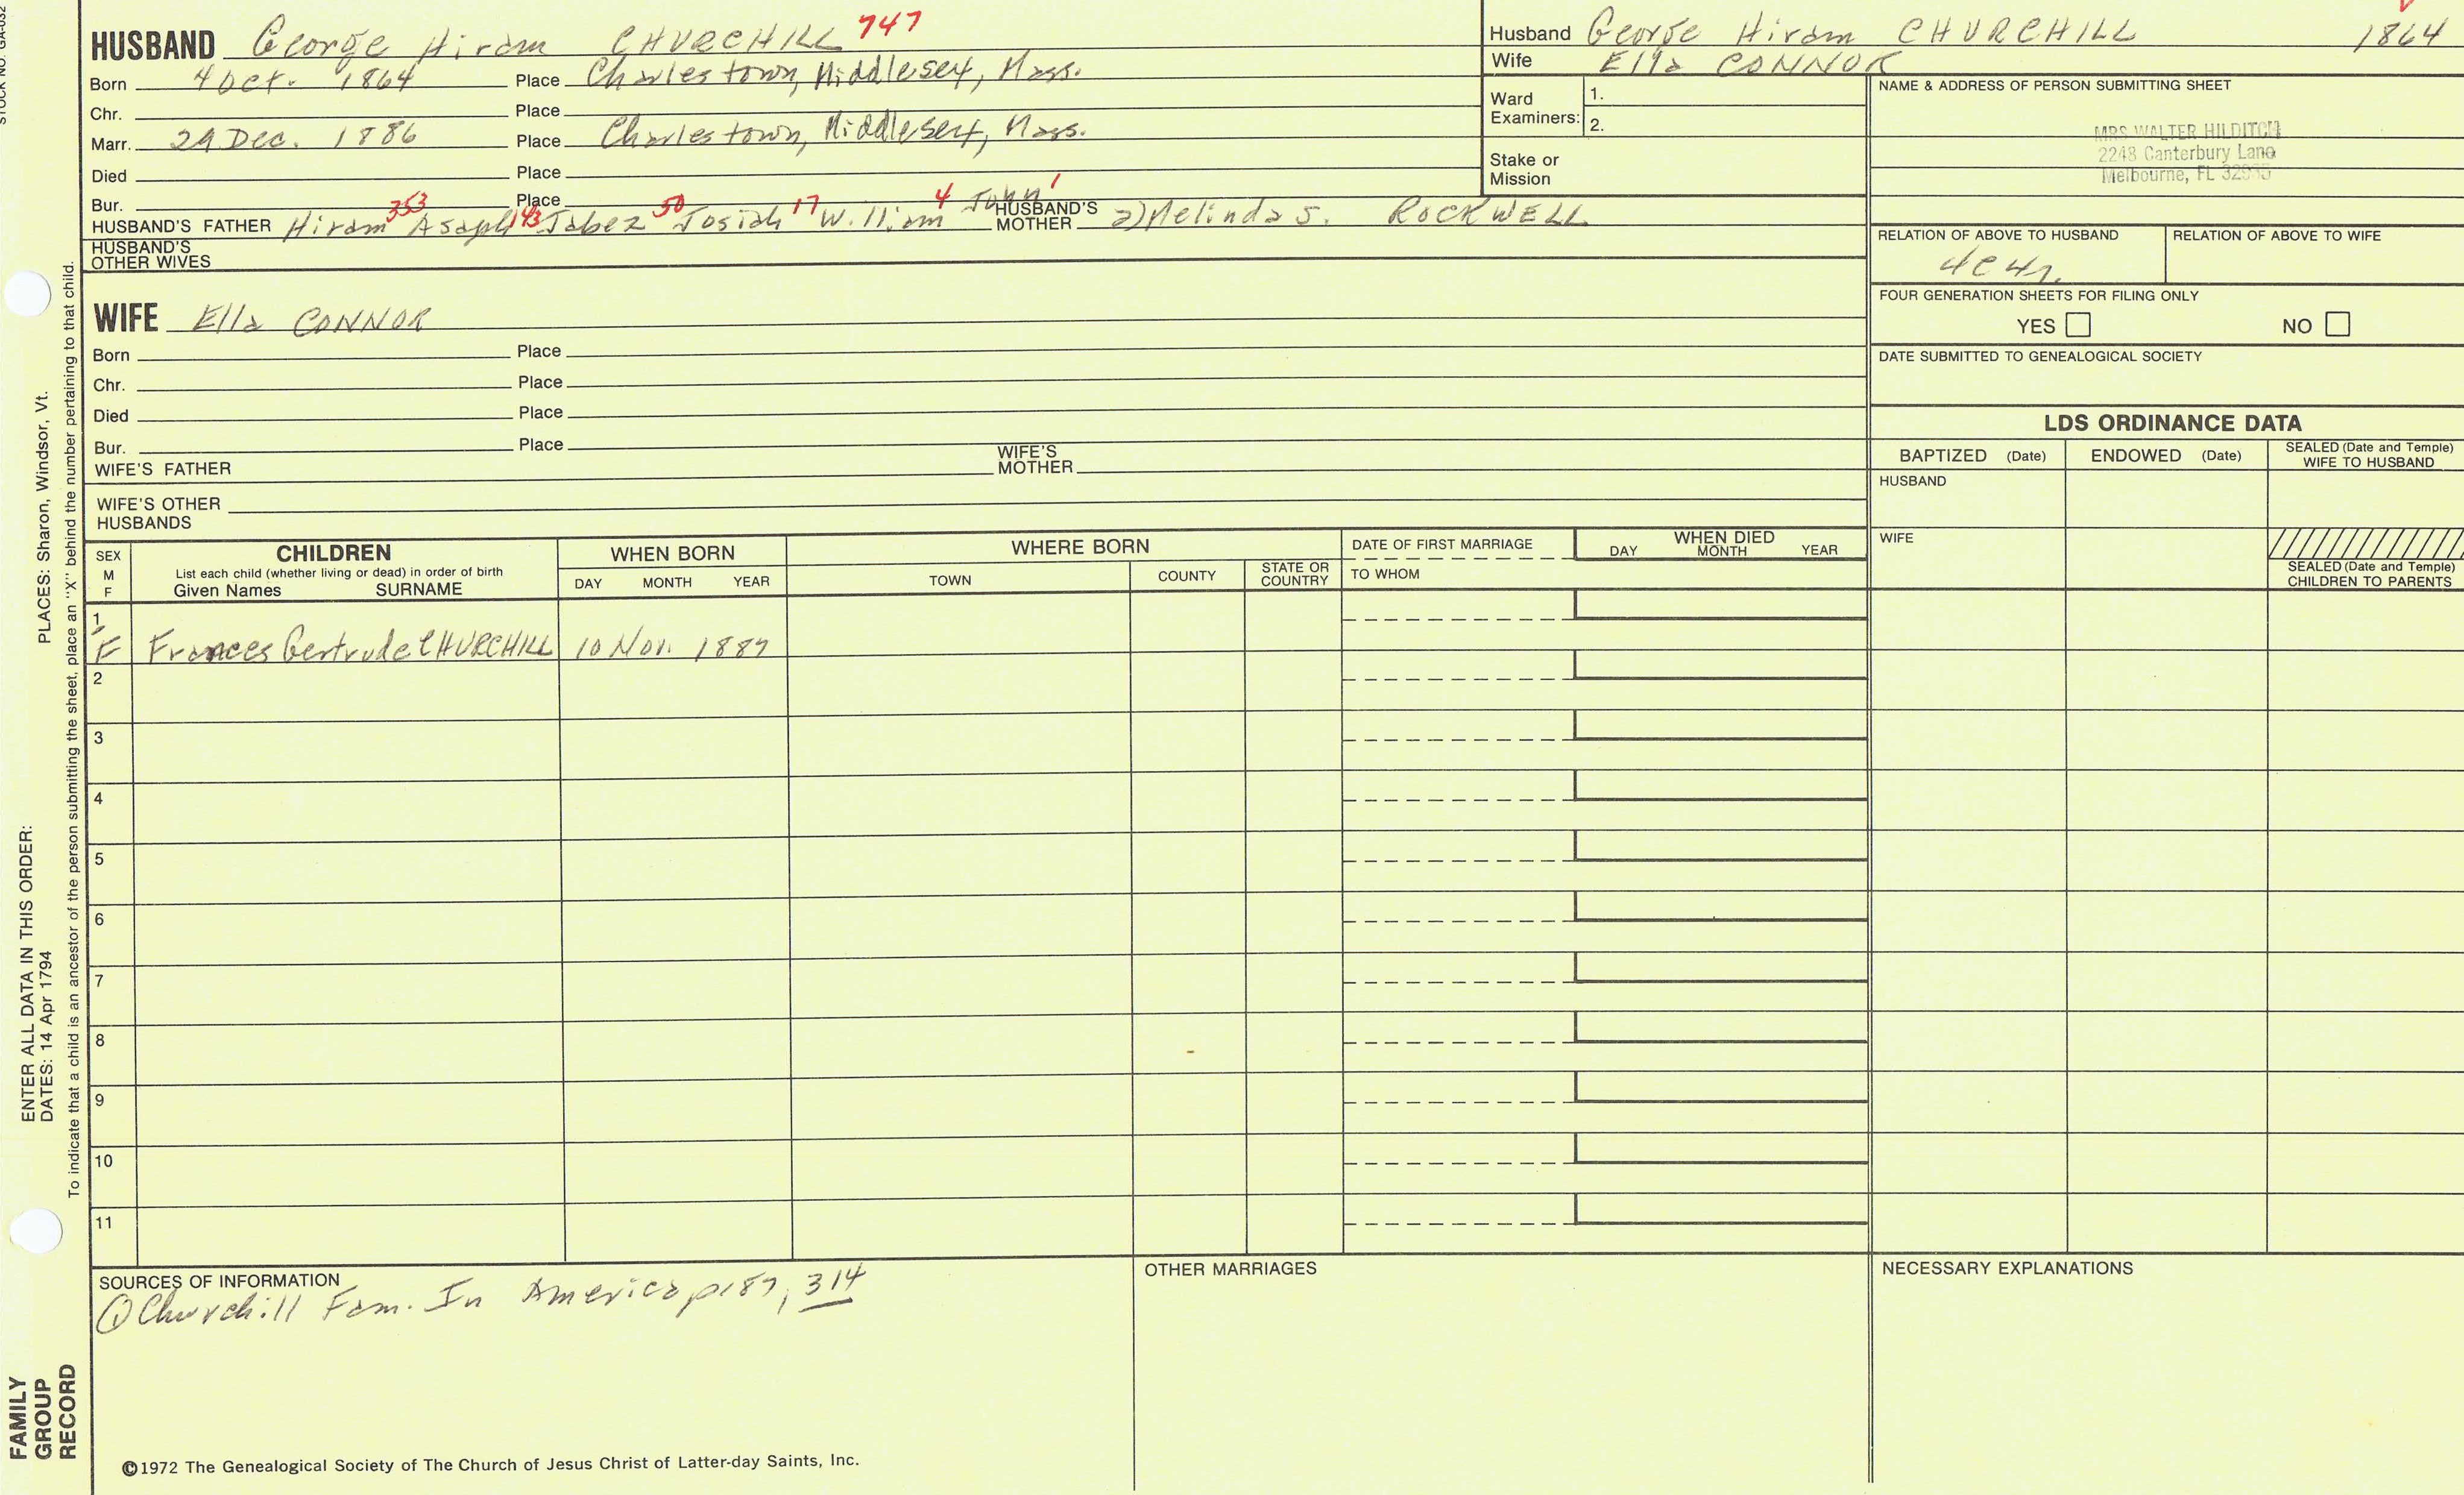 STOCK NO. GA-032
HUSBAND George Hiram CHURCHILL 747
Born 4 Oct. 1864 Place Charlestown, Middlesex, Mass.
Chr. Place
Marr. 29 Dec. 1886 Place Charlestown, Middlesex, Mass.
Died Place
Bur. Place
HUSBAND'S FATHER Hiram 353 Asaph 143 Jabez 50 Josiah 17 William 4 John 1 HUSBAND'S MOTHER 2) Melinda S. ROCKWELL
HUSBAND'S OTHER WIVES
Husband George Hiram CHURCHILL 1864
Wife Ella CONNOR
Ward Examiners: 1.
2.
Stake or Mission
NAME & ADDRESS OF PERSON SUBMITTING SHEET
MRS WALTER HILDITCH
2248 Canterbury Lane
Melbourne, FL
RELATION OF ABOVE TO HUSBAND RELATION OF ABOVE TO WIFE
4C4r.
FOUR GENERATION SHEETS FOR FILING ONLY
YES NO
DATE SUBMITTED TO GENEALOGICAL SOCIETY
WIFE Ella CONNOR
Born Place
Chr. Place
Died Place
Bur. Place
WIFE'S FATHER WIFE'S MOTHER
WIFE'S OTHER HUSBANDS
LDS ORDINANCE DATA
BAPTIZED (Date) ENDOWED (Date) SEALED (Date and Temple) WIFE TO HUSBAND
HUSBAND
WIFE
SEALED (Date and Temple) CHILDREN TO PARENTS
SEX M F
CHILDREN
List each child (whether living or dead) in order of birth
Given Names SURNAME
WHEN BORN
DAY MONTH YEAR
WHERE BORN
TOWN COUNTY STATE OR COUNTRY
DATE OF FIRST MARRIAGE
TO WHOM
WHEN DIED
DAY MONTH YEAR
1
F Frances Gertrude CHURCHILL 10 Nov. 1887
2
3
4
5
6
7
8
9
10
11
SOURCES OF INFORMATION
① Churchill Fam. In America p187, 314
OTHER MARRIAGES
NECESSARY EXPLANATIONS
©1972 The Genealogical Society of The Church of Jesus Christ of Latter-day Saints, Inc.
FAMILY
GROUP
RECORD
ENTER ALL DATA IN THIS ORDER:
DATES: 14 Apr 1794 PLACES: Sharon, Windsor, Vt.
To indicate that a child is an ancestor of the person submitting the sheet, place an "X" behind the number pertaining to that child.